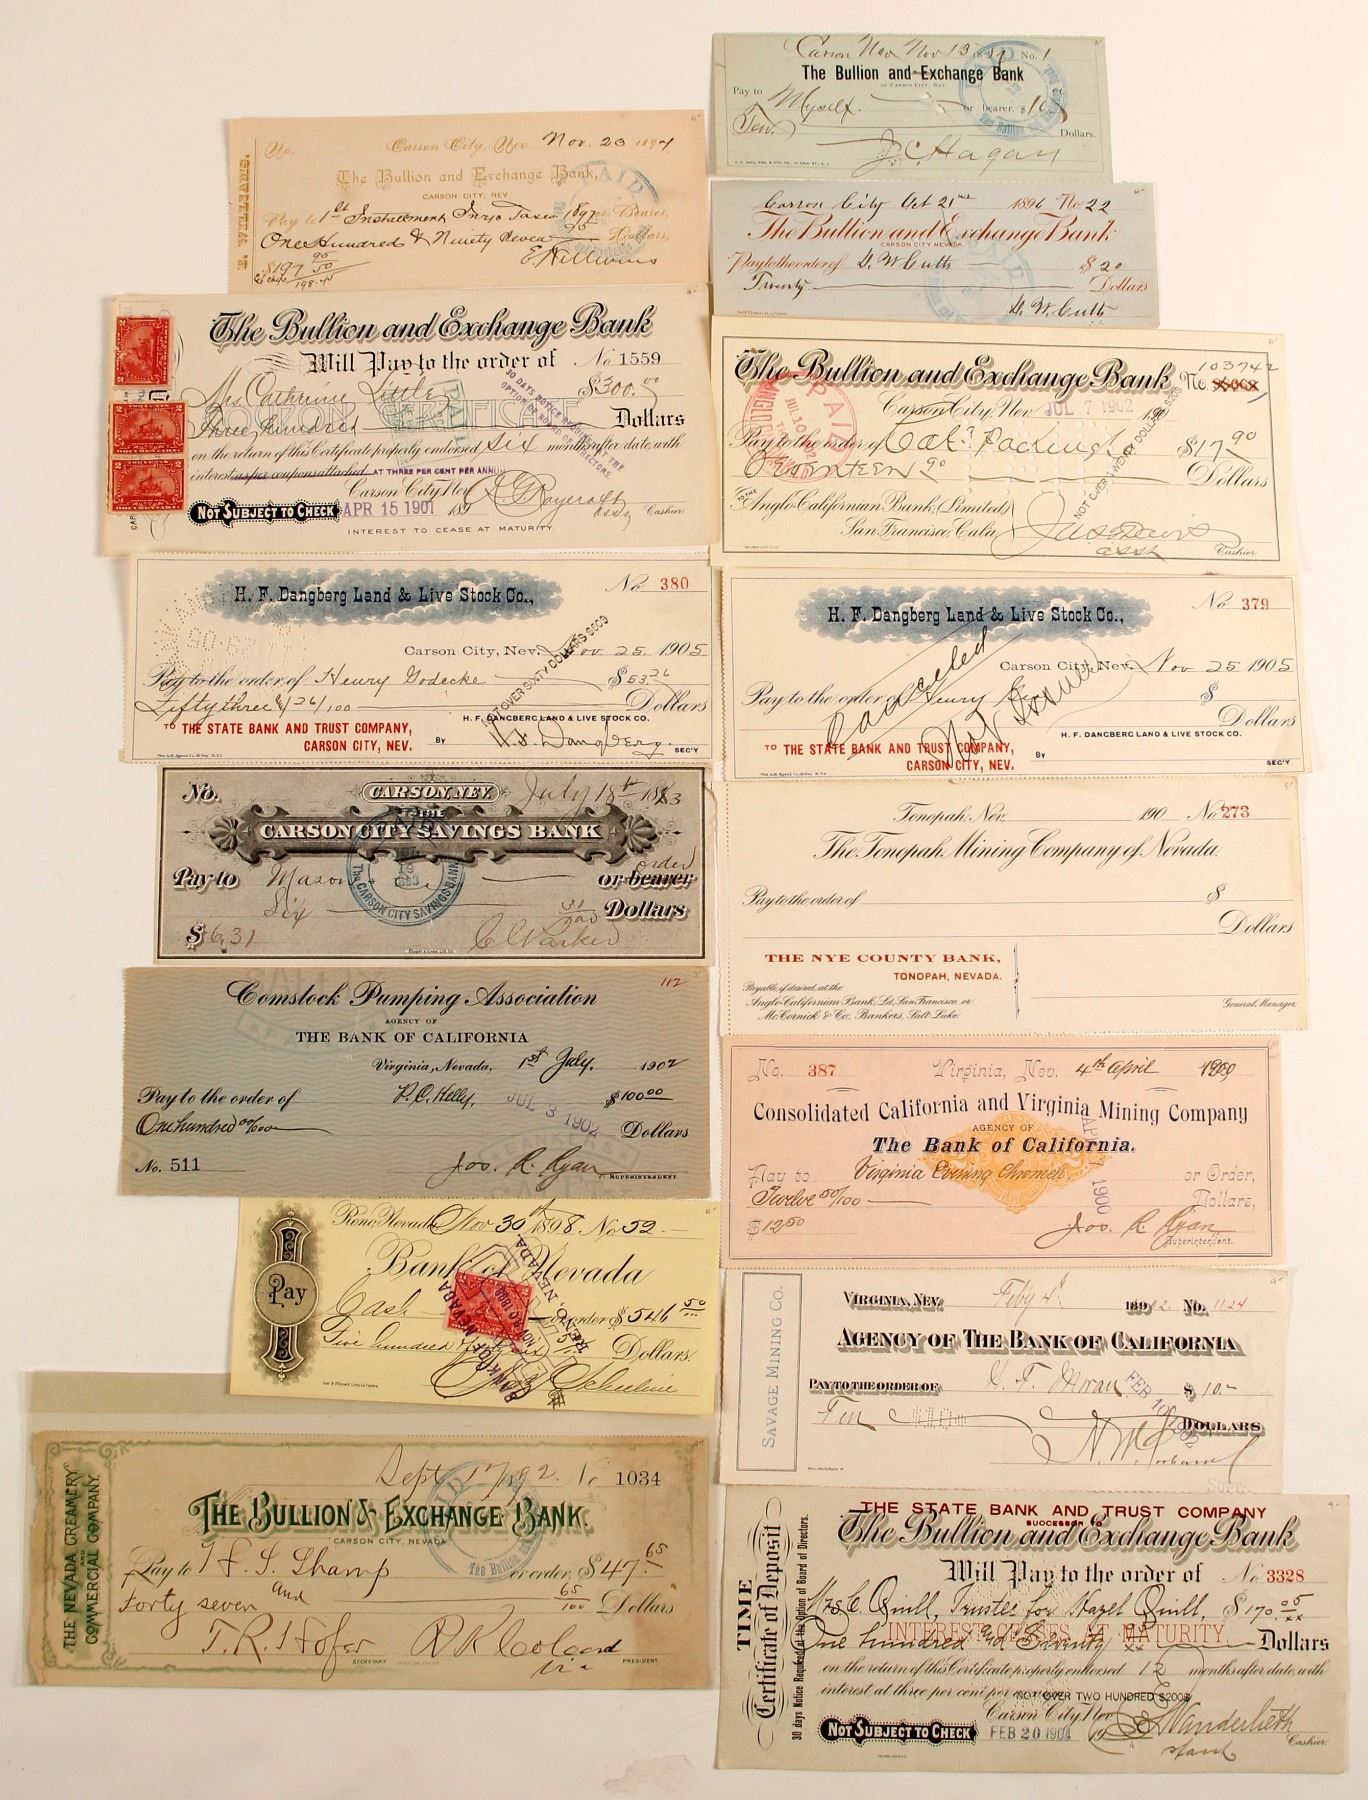 Carson Nev Nov 13 1889 No. 1
The Bullion and Exchange Bank
OF CARSON CITY, NEV.
Pay to Myself or bearer, $10
Ten Dollars.
J C Hagan
No. Carson City, Nev. Nov. 23 1897
The Bullion and Exchange Bank,
CARSON CITY, NEV.
Pay to 1st Instalment Inyo Taxes 1897 or Bearer,
One Hundred & Ninety Seven 95 Dollars,
$197 95
50
198.45
E. WILLIAMS.
E Williams
PAID
Carson City Oct 21st 1896 No. 22
The Bullion and Exchange Bank
CARSON CITY, NEVADA.
Pay to the order of D. W. Cutts $20
Twenty Dollars
D. W. Cutts
The Bullion and Exchange Bank
Will Pay to the order of No. 1559
Mrs Cathrine Little $300.00
COUPON CERTIFICATE
PAID
Three hundred Dollars
30 DAYS NOTICE REQUIRED AT THE OPTION OF BOARD OF DIRECTORS.
on the return of this Certificate properly endorsed six months after date, with
interest as per coupons attached. AT THREE PER CENT PER ANNUM
Carson City, Nev. 189
NOT SUBJECT TO CHECK APR 15 1901
Asst Cashier
INTEREST TO CEASE AT MATURITY.
The Bullion and Exchange Bank No. 103742
Carson City, Nev. JUL 7 1902 190
Pay to the order of Cal. Packing $17.90
Seventeen 90 Dollars
TO THE Anglo-Californian Bank, (Limited)
San Francisco, Cala.
NOT OVER TWENTY DOLLARS $20$
PAID
JUL 10 1902
asst Cashier.
H. F. Dangberg Land & Live Stock Co., No. 380
Carson City, Nev. Nov 25 1905
Pay to the order of Henry Godecke $53.26
Fifty three & 26/100 Dollars
NOT OVER SIXTY DOLLARS $60$
TO THE STATE BANK AND TRUST COMPANY,
CARSON CITY, NEV.
H. F. DANGBERG LAND & LIVE STOCK CO.
By H. F. Dangberg. SEC'Y
H. F. Dangberg Land & Live Stock Co., No. 379
Carson City, Nev. Nov 25 1905
Pay to the order of Henry G $
Cancelled
Not Issued
Dollars
TO THE STATE BANK AND TRUST COMPANY,
CARSON CITY, NEV.
H. F. DANGBERG LAND & LIVE STOCK CO.
By SEC'Y
No. CARSON, NEV. July 18th 1883
TO THE
CARSON CITY SAVINGS BANK
Pay to Mason or bearer order
Six 31/100 Dollars
$6.31
C C Parker
PAID
The CARSON CITY SAVINGS BANK
Tonopah, Nev. 190 No. 273
The Tonopah Mining Company of Nevada.
Pay to the order of $
Dollars
THE NYE COUNTY BANK,
TONOPAH, NEVADA.
Payable, if desired, at the
Anglo-Californian Bank, Ld. San Francisco, or
McCornick & Co. Bankers, Salt Lake.
General Manager.
112
Comstock Pumping Association
AGENCY OF
THE BANK OF CALIFORNIA
Virginia, Nevada, 1st July. 1902
Pay to the order of P. C. Kelly. $100.00
JUL 3 1902
One hundred 00/100 Dollars
No. 511
Jos. R. Ryan SUPERINTENDENT
No. 387 Virginia, Nev. 4th April 1900
Consolidated California and Virginia Mining Company
AGENCY OF
The Bank of California.
Pay to Virginia Evening Chronicle. or Order,
Twelve 50/100 Dollars,
$12.50
Jos. R. Ryan
Superintendent.
Reno, Nevada Nov 30th 1898 No. 52
Pay
Bank of Nevada
Cash or order $546 50
Five hundred forty six 50 Dollars.
BANK OF NEVADA
RENO, NEVADA.
VIRGINIA, NEV. Feby 4 1902. No. 1124
SAVAGE MINING CO.
AGENCY OF THE BANK OF CALIFORNIA
PAY TO THE ORDER OF C. F. Moran $10.-
FEB 10 1902
Ten DOLLARS
Sept 17 1892. No. 1034
THE NEVADA CREAMERY
AND
COMMERCIAL COMPANY.
THE BULLION & EXCHANGE BANK.
CARSON CITY, NEVADA
Pay to or order, $47.65
Forty seven and 65/100 Dollars
T. R. Hofer SECRETARY
PRESIDENT
THE STATE BANK AND TRUST COMPANY
SUCCESSOR TO
The Bullion and Exchange Bank
TIME
Certificate of Deposit
30 days Notice Required at the Option of Board of Directors.
Will Pay to the order of No. 3328
Mrs C. Quill, Trustee for Hazel Quill, $170.05
INTEREST CEASES AT MATURITY
One hundred and Seventy Dollars
on the return of this Certificate properly endorsed 12 months after date, with
interest at three per cent per
NOT OVER TWO HUNDRED $200$
Carson City, Nev.
NOT SUBJECT TO CHECK FEB 20 1904 19
Cashier.